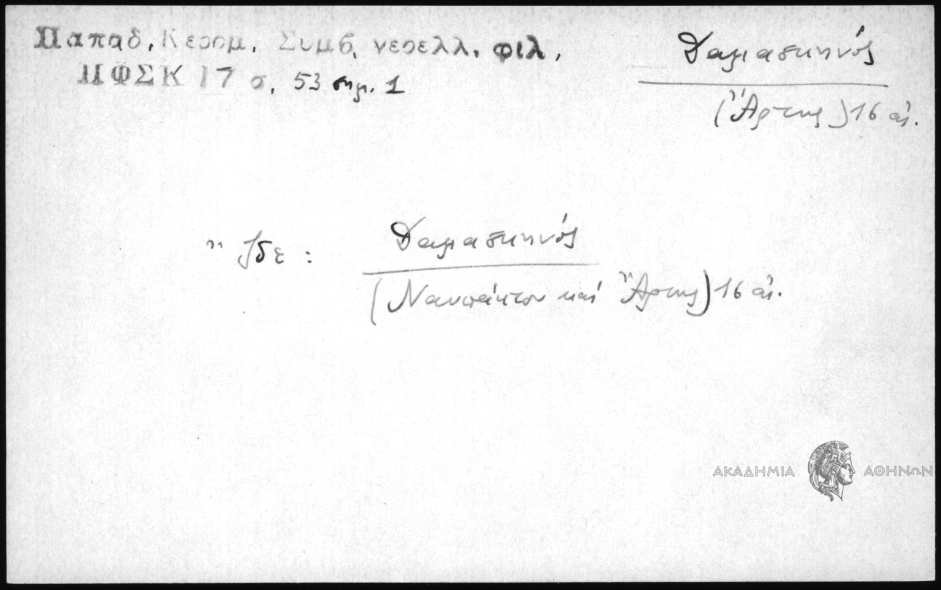 Παπαδ. Κεραμ. Συμβ. νεοελλ. φιλ.
ΗΦΣΚ 17 σ. 53 σημ. 1
Δαμασκηνός
(Ἄρτης) 16 αἰ.
Ἴδε :
Δαμασκηνός
(Ναυπάκτου καί Ἄρτης) 16 αἰ.
ΑΚΑΔΗΜΙΑ ΑΘΗΝΩΝ